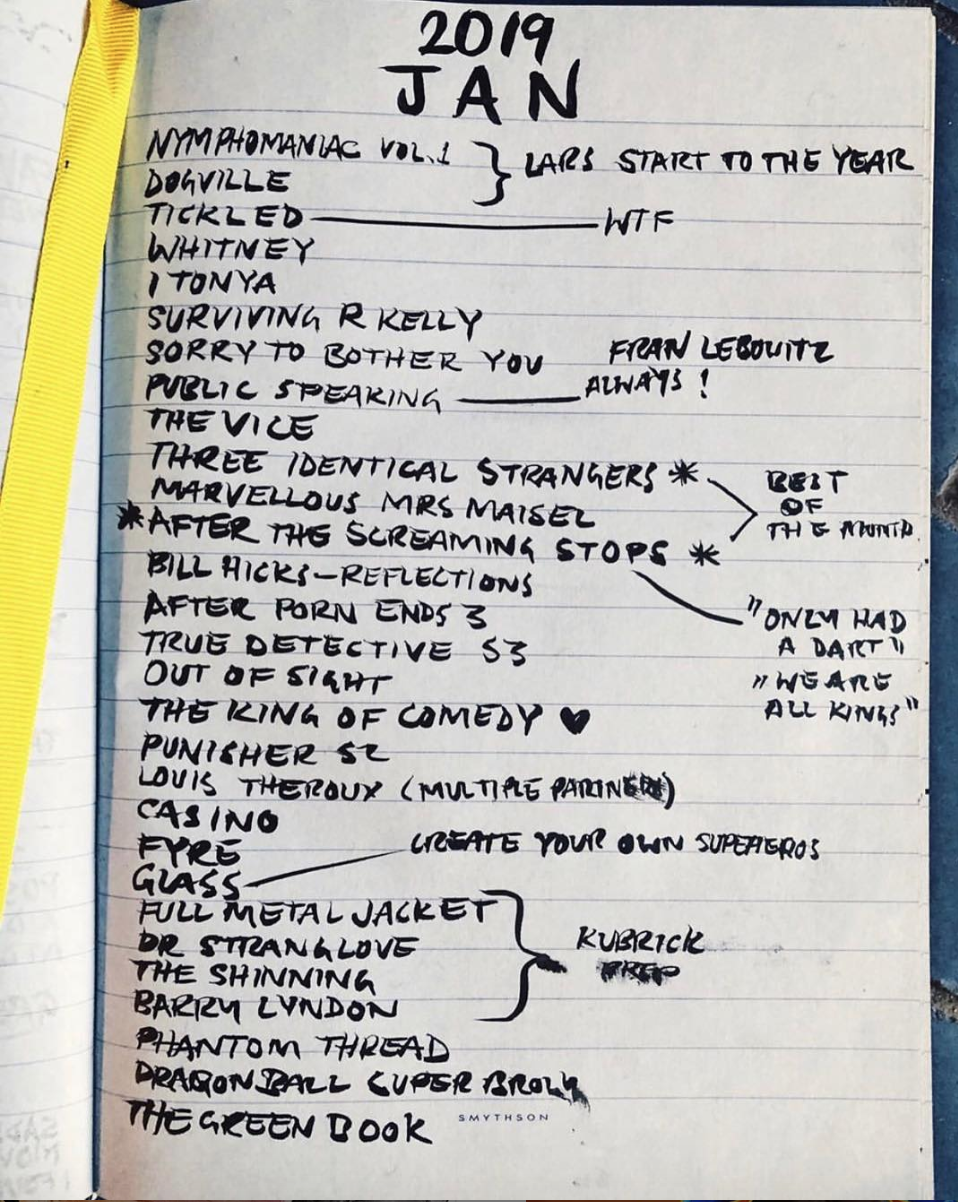 2019
JAN
NYMPHOMANIAC VOL.1
DOGVILLE
LARS START TO THE YEAR
TICKLED
WTF
WHITNEY
I TONYA
SURVIVING R KELLY
SORRY TO BOTHER YOU
PUBLIC SPEAKING
FRAN LEBOWITZ
ALWAYS !
THE VICE
THREE IDENTICAL STRANGERS *
MARVELLOUS MRS MAISEL
*AFTER THE SCREAMING STOPS *
BEST
OF
THE MONTH
BILL HICKS-REFLECTIONS
"ONLY HAD
A DART"
"WE ARE
ALL KINGS"
AFTER PORN ENDS 3
TRUE DETECTIVE S3
OUT OF SIGHT
THE KING OF COMEDY ♥
PUNISHER S2
LOUIS THEROUX (MULTIPLE
CASINO
FYRE
GLASS
CREATE YOUR OWN SUPEHEROS
FULL METAL JACKET
DR STRANGLOVE
THE SHINNING
BARRY LYNDON
KUBRICK
PREP
PHANTOM THREAD
DRAGONBALL SUPER BROLY
THE GREEN BOOK
SMYTHSON